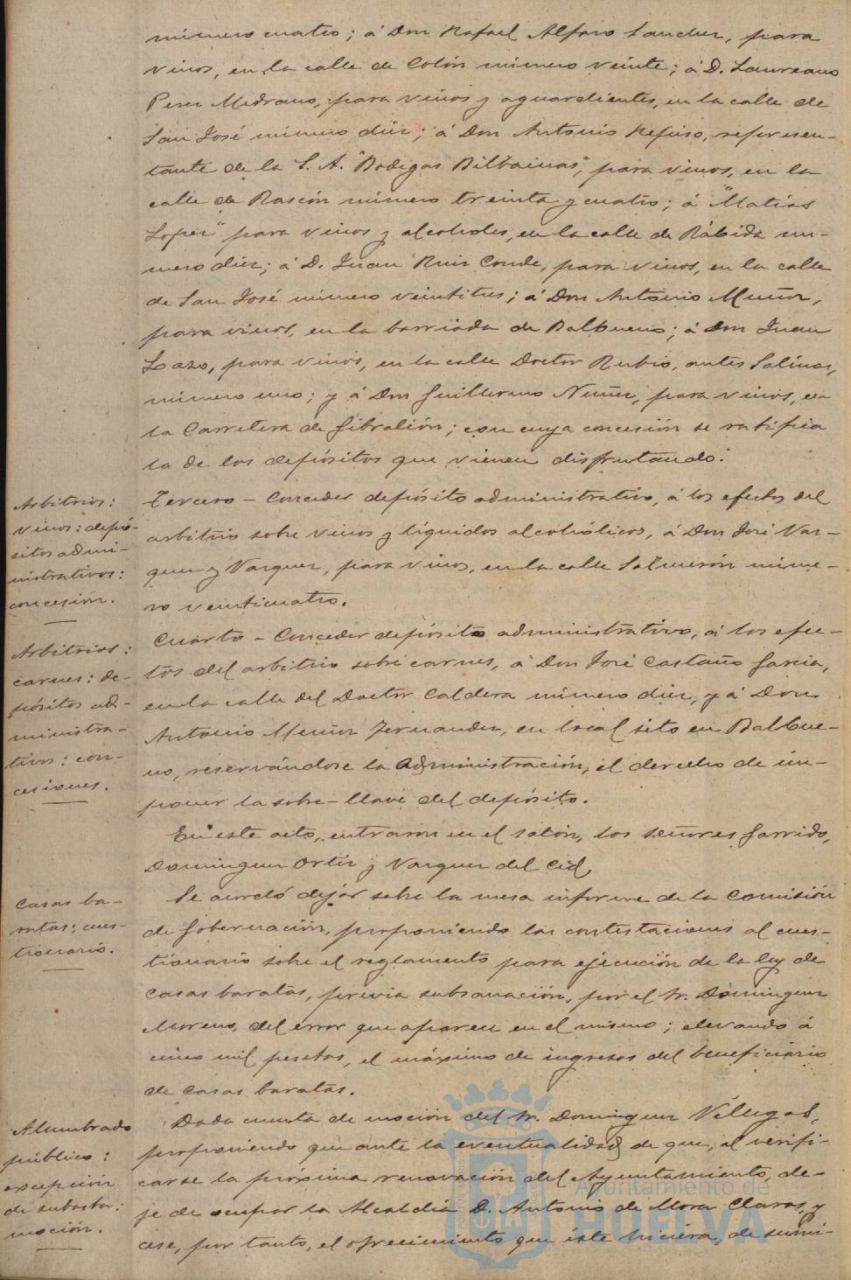 número cuatro; á Don Rafael Alfaro Sanchez, para
vinos, en la calle de Colón número veinte; á D. Laureano
Perez Medrano, para vinos y aguardientes, en la calle de
San José número diez; á Don Antonio Refuso, represen-
tante de la S. A. "Bodegas Bilbainas", para vinos, en la
calle de Rascón número treinta y cuatro; á "Matías
Lopez" para vinos y alcoholes, en la calle de Rábida nú-
mero diez; á D. Juan Ruiz Conde, para vinos, en la calle
de San José número veintitres; á Don Antonio Muñoz,
para vinos, en la barriada de Balbueno; á Don Juan
Lazo, para vinos, en la calle Doctor Rubio, antes Salinas,
número uno; y á Don Guillermo Nuñez, para vinos, en
la Carretera de Gibraleón; con cuya concesión se ratifica
la de los depósitos que vienen disfrutando.
Arbitrios:
vinos: depó-
sitos admi-
nistrativos:
concesión.
Tercero - Conceder depósito administrativo, á los efectos del
arbitrio sobre vinos y líquidos alcohólicos, á Don José Vaz-
quez y Vazquez, para vinos, en la calle Salmerón núme-
ro veinticuatro.
Arbitrios:
carnes: de-
pósitos ad-
ministra-
tivos: con-
cesiones.
Cuarto - Conceder depósito administrativo, á los efec-
tos del arbitrio sobre carnes, á Don José Castaño Garcia,
en la calle del Doctor Caldera número diez, y á Don
Antonio Muñoz Fernandez, en local sito en Balbue-
no, reservándose la Administración, el derecho de im-
poner la sobre-llave del depósito.
En este acto, entraron en el salón, los señores Garrido,
Dominguez Ortiz y Vazquez del Cid.
Casas ba-
ratas: cues-
tionario.
Se acordó dejar sobre la mesa informe de la Comisión
de Gobernación, proponiendo las contestaciones al cues-
tionario sobre el reglamento para ejecución de la ley de
casas baratas, previa subsanación, por el Sr. Dominguez
Moreno, del error que aparece en el mismo; elevando á
cinco mil pesetas, el máximo de ingresos del beneficiario
de casas baratas.
Alumbrado
público:
excepción
de subasta:
moción.
Dada cuenta de moción del Sr. Dominguez Villegas,
proponiendo que ante la eventualidad de que, al verifi-
carse la próxima renovación del Ayuntamiento, de-
je de ocupar la Alcaldía D. Antonio de Mora Claros, y
cese, por tanto, el ofrecimiento que este hiciera, de sumi-
Ayuntamiento de
HUELVA